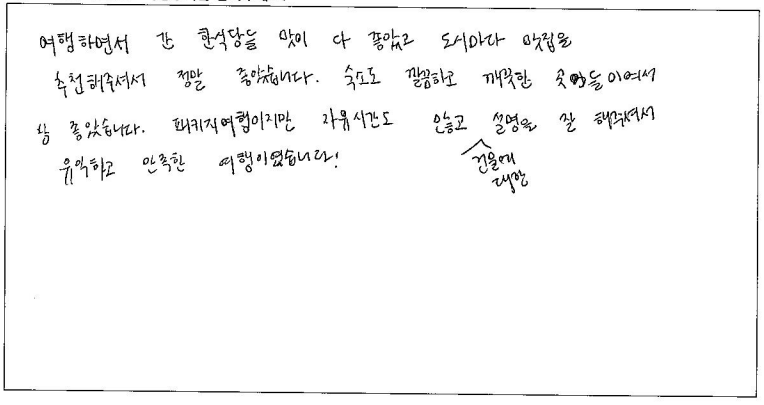 여행하면서 간 한식당들 맛이 다 좋았고 도시마다 맛집을
추천해주셔서 정말 좋았습니다. 숙소도 깔끔하고 깨끗한 곳들이여서
참 좋았습니다. 패키지여행이지만 자유시간도 많고 건물에 대한 설명을 잘 해주셔서
유익하고 만족한 여행이였습니다!